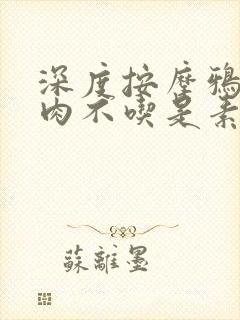 深度按摩鴉
肉不喫是素
蘇離墨